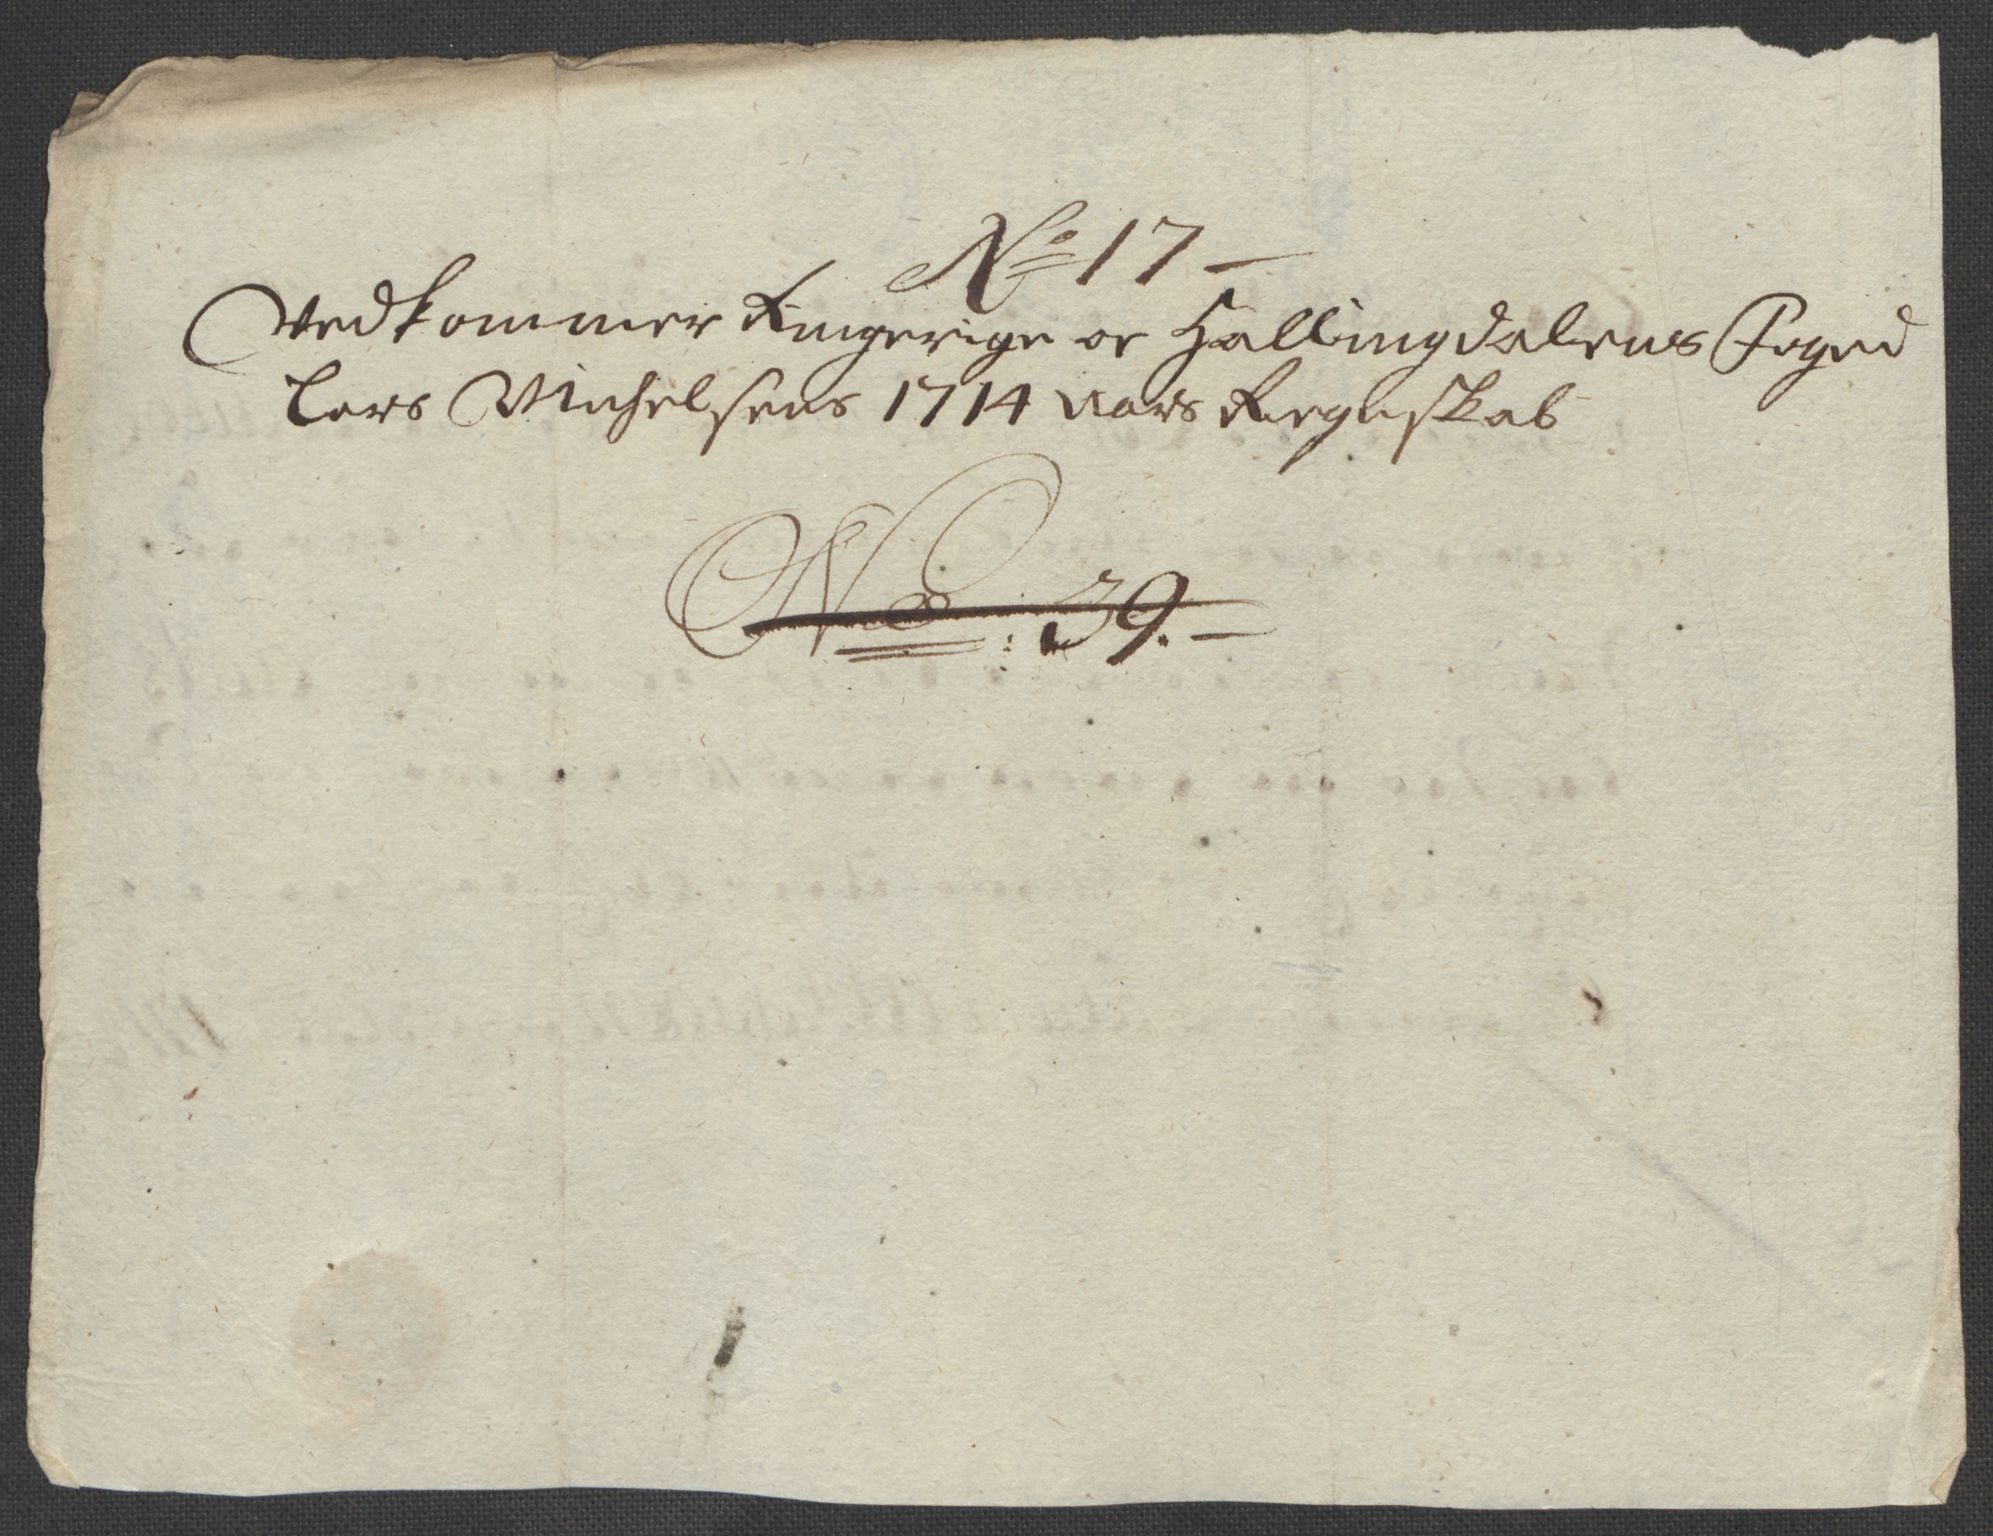 No 17 -
Vedkommer Ringerige oc Hallingdalens Foged
Lars Michelsens 1714 Aars Regnskab
No: 39. -